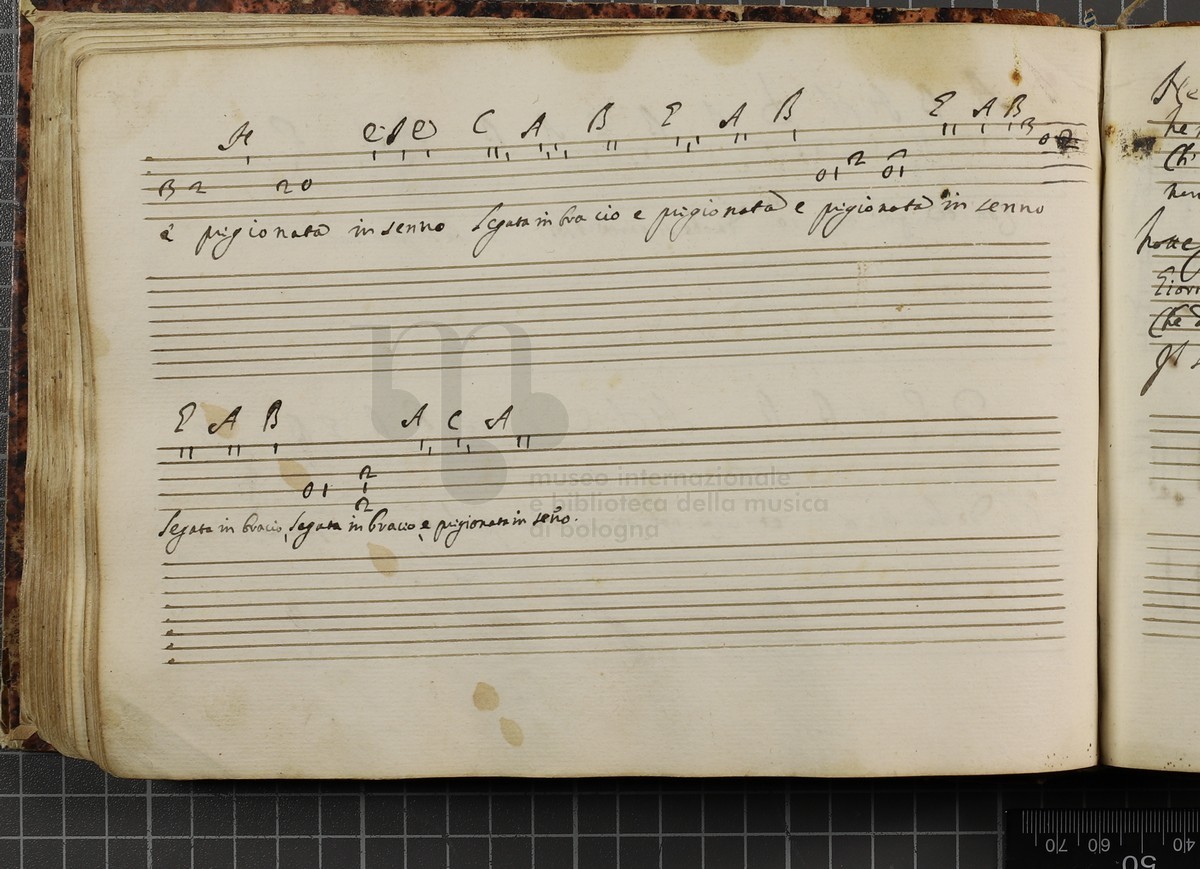 H C A C C A B E A B E A B B
B 2 2 0 0 1 2 0 1 0 2
è prigionata in senno Legata in bracio e prigionata e prigionata in senno
E A B A C A
0 1 2
2
Legata in bracio, legata in bracio e prigionata in seño.
museo internazionale
e biblioteca della musica
di bologna
he
Che
70 60 50 40